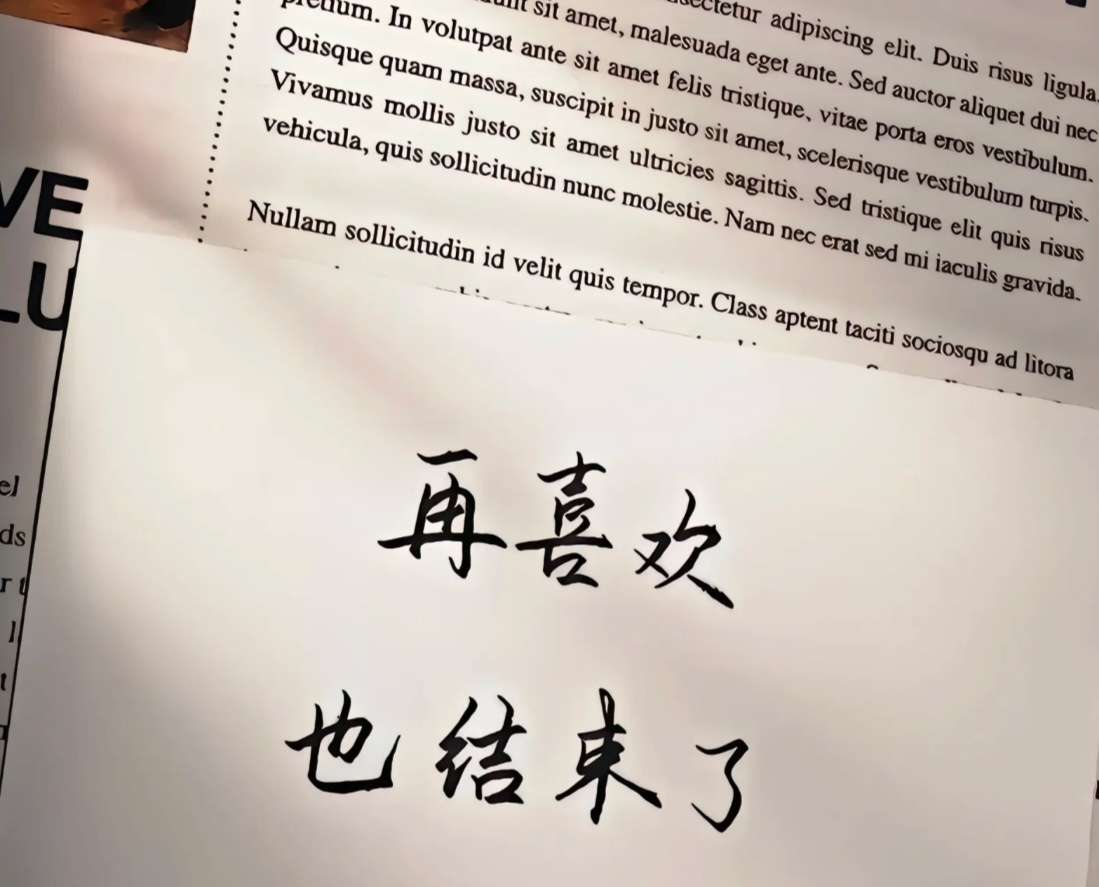 adipiscing elit. Duis risus ligula
sit amet, malesuada eget ante. Sed auctor aliquet dui nec
pretium. In volutpat ante sit amet felis tristique, vitae porta eros vestibulum.
Quisque quam massa, suscipit in justo sit amet, scelerisque vestibulum turpis.
Vivamus mollis justo sit amet ultricies sagittis. Sed tristique elit quis risus
vehicula, quis sollicitudin nunc molestie. Nam nec erat sed mi iaculis gravida.
Nullam sollicitudin id velit quis tempor. Class aptent taciti sociosqu ad litora
VE
LU
el
ds
r t
l
t
再喜欢
也结束了